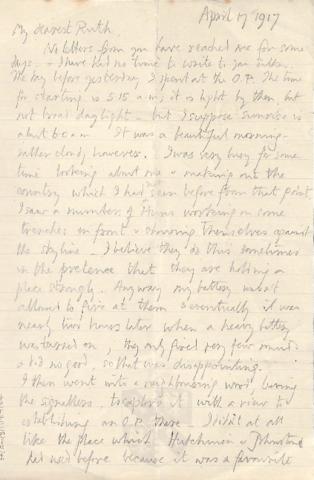 April 17 1917
My dearest Ruth.
No letters from you have reached me for some
days – I have had no time to write to you either.
The day before yesterday I spent at the O.P. The time
for starting is 5.15 a.m; it is light by then, but
not broad daylight – but I suppose sunrise is
about 6 a.m. It was a beautiful morning –
rather cloudy however. I was very busy for some
time looking about me & making out the
country which I had not seen before from that point
I saw a number of Huns working on some
trenches in front & showing themselves against
the skyline – I believe they do this sometimes
in the pretence that they are holding a
place strongly. Anyway my battery wasn't
allowed to fire at them & eventually it was
nearly two hours later when a heavy battery
was turned on, they only fired very few rounds
& did no good, so that was disappointing.
I then went into a neighbouring wood leaving
the signallers, to explore it with a view to
establishing an O.P. there. I didn't at all
like the place which Hutchinson & Johnstone
had used before because it was a favourite